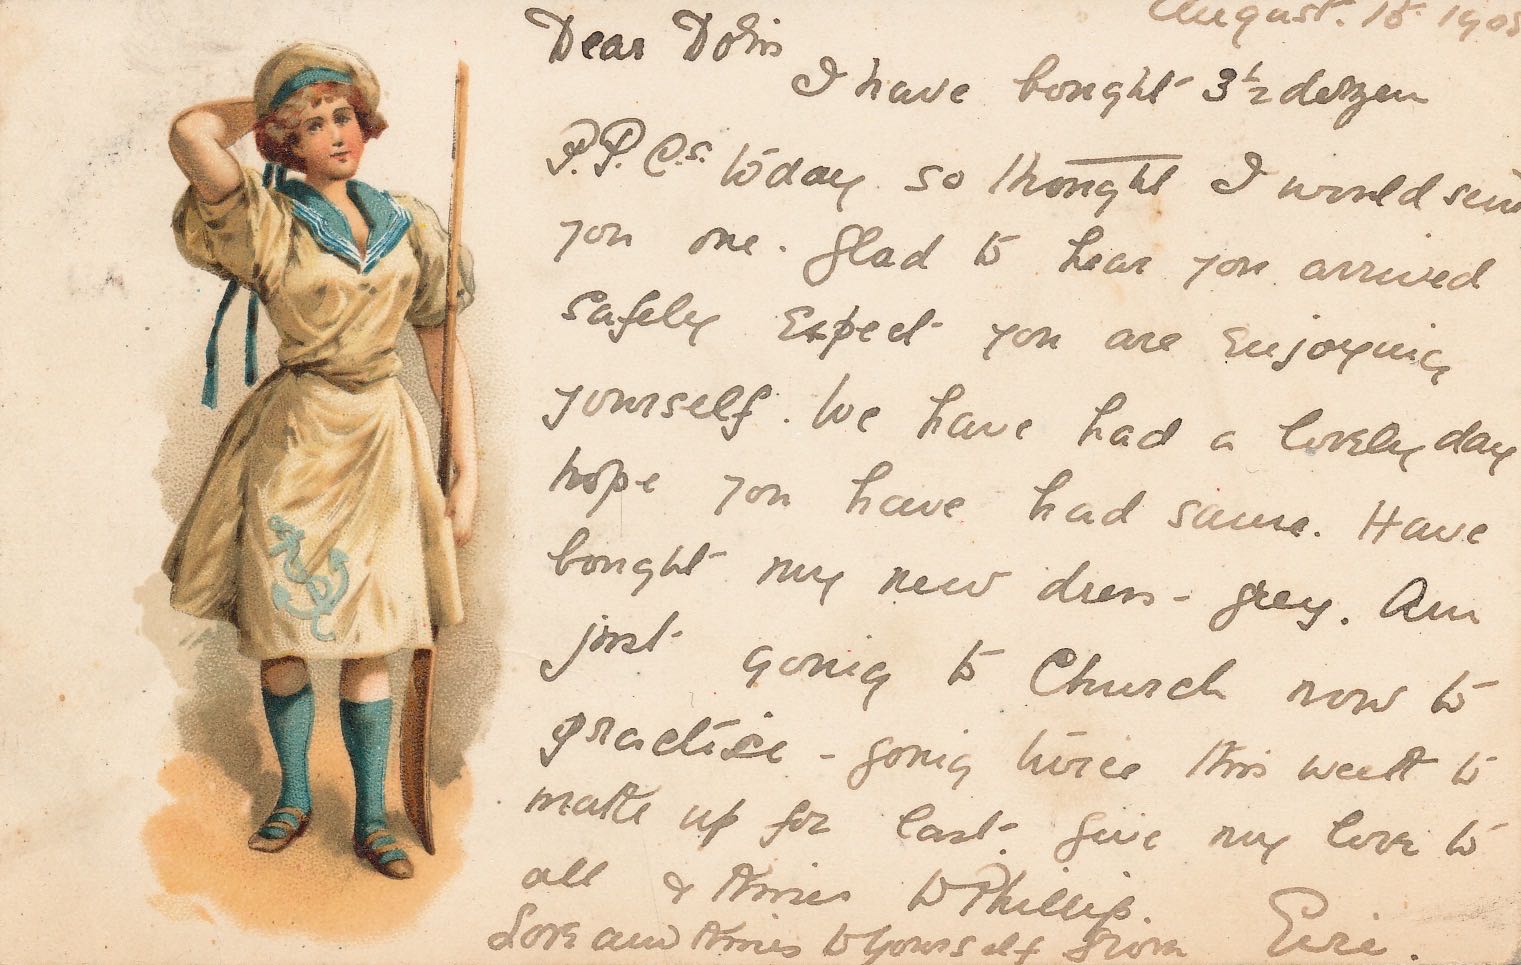 August. 15 190
Dear Doris
I have bought 3½ dozen
P.P.C.s. today so thought I would send
you one. Glad to hear you arrived
safely Expect you are Enjoying
yourself. We have had a lovely day
hope you have had same. Have
bought my new dress - grey. Am
just going to Church now to
practice - going twice this week to
make up for last. Give my love to
all & kisses to Phillip.
Love and kisses to yourself from